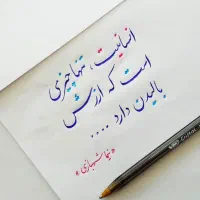 انسانیت، تنها چیزی
است که ارزش
بالیدن دارد ....
«نیما شهسواری»